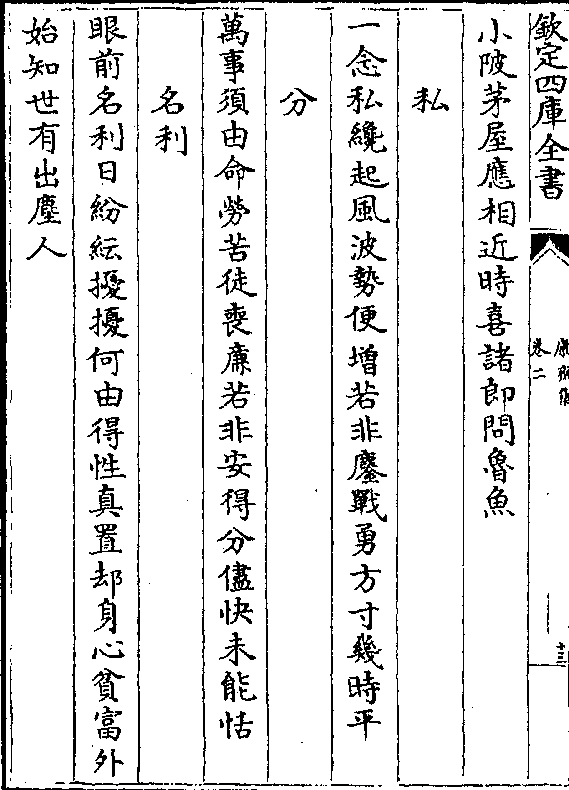 欽定四庫全書
卷二
十三
小陂茅屋應相近時喜諸郎問魯魚
私
一念私纔起風波勢便增若非鏖戰勇方寸幾時平
分
萬事須由命勞苦徒喪廉若非安得分儘快未能恬
名利
眼前名利日紛紜擾擾何由得性真置却身心貧富外
始知世有出塵人